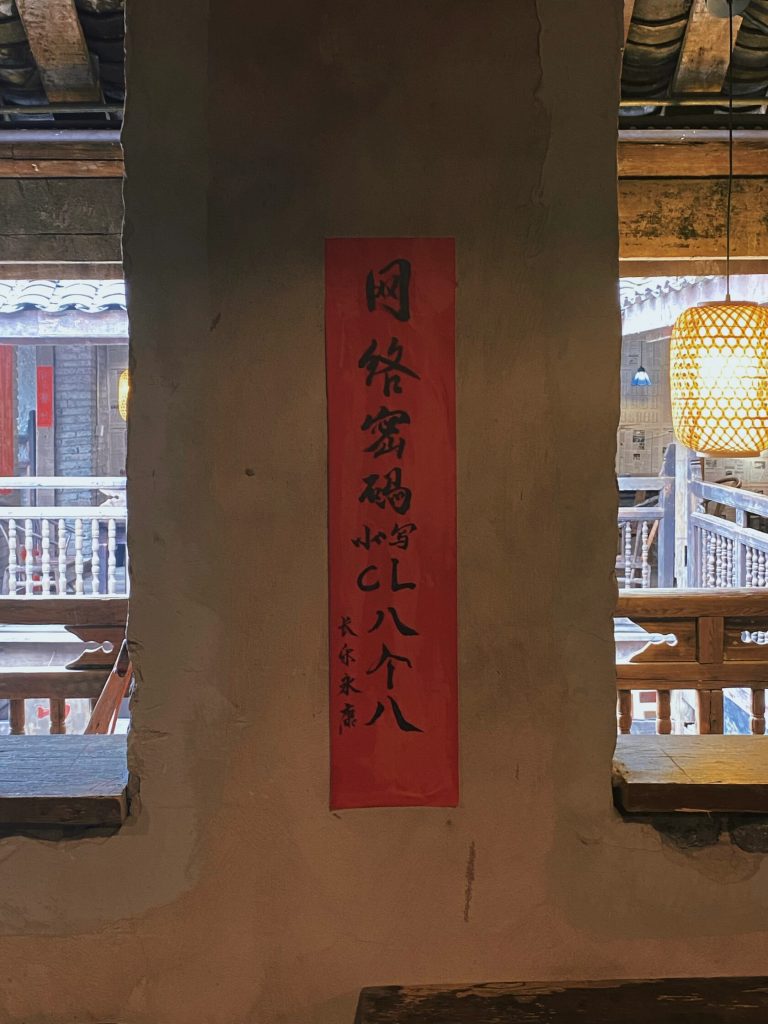 网络密码
小写
CL八个八
长乐永康